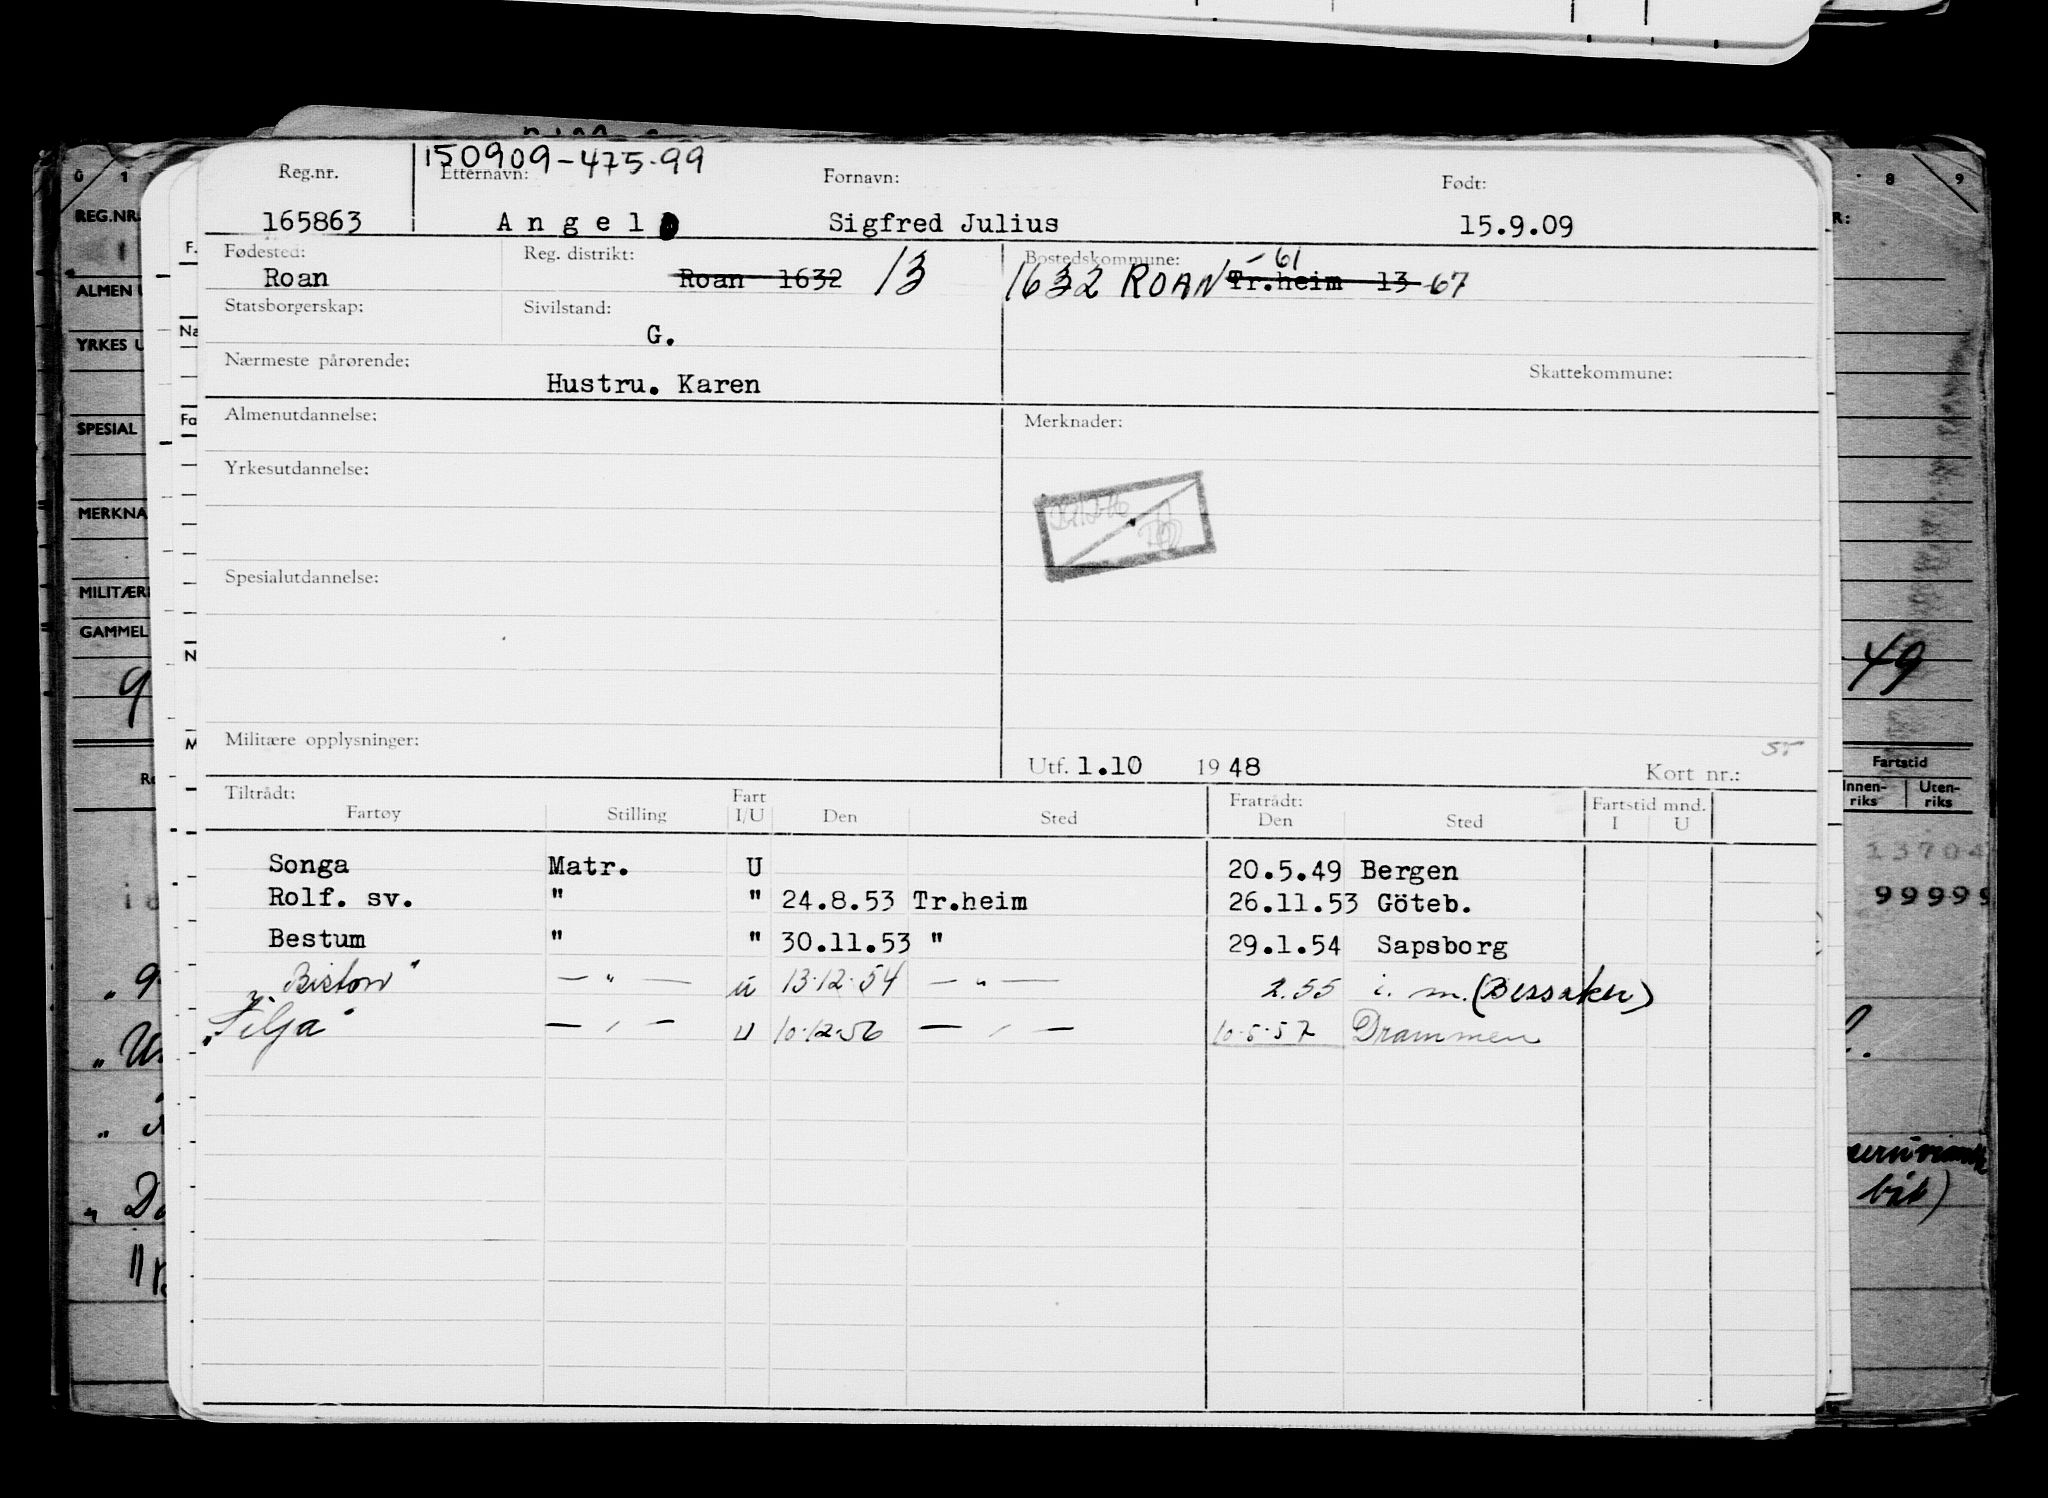 150909-475.99
Reg.nr. Etternavn: Fornavn: Født:
165863 Angel Sigfred Julius 15.9.09
Fødested: Reg. distrikt: Bostedskommune: -61
Roan Roan 1632 13 1632 ROAN Tr.heim 13 -67
Statsborgerskap: Sivilstand:
G.
Nærmeste pårørende: Skattekommune:
Hustru. Karen
Almenutdannelse: Merknader:
Yrkesutdannelse:
Spesialutdannelse:
Militære opplysninger:
Utf. 1.10 1948 Kort nr.:
Tiltrådt: Fart Fratrådt: Fartstid mnd.
Fartøy Stilling I/U Den Sted Den Sted I U
Songa Matr. U 20.5.49 Bergen
Rolf. sv. " " 24.8.53 Tr.heim 26.11.53 Göteb.
Bestum " " 30.11.53 " 29.1.54 Sapsborg
— " — u 13.12.54 — " — 2.55 i. m. (Bessaker)
"Silja" — " — U 10.12.56 — " — 10.5.57 Drammen
REG.NR.
ALMEN U
YRKES U
SPESIAL
MERKNA
MILITÆR
GAMMEL
49
Fartstid
Innen-riks Uten-riks
13704
99999
båt)